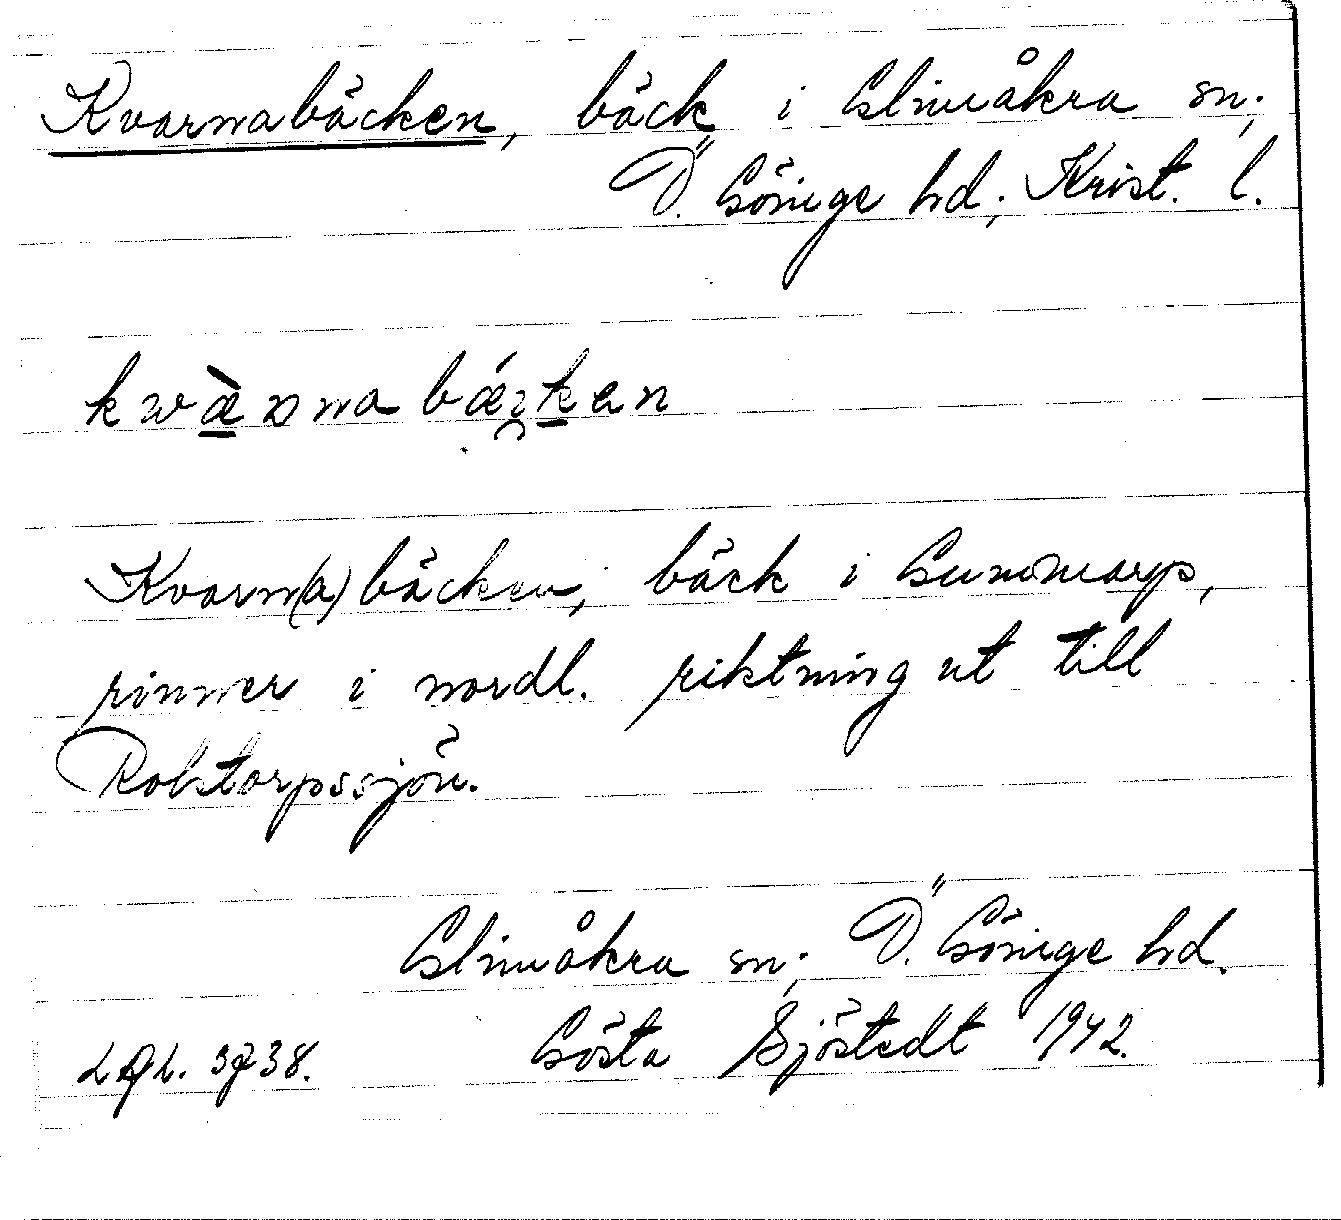 Kvarnabäcken, bäck i Glimåkra sn;
Ö. Göinge hd; Krist. l.
Kvarn(a)bäcken, bäck i Gummarp,
rinner i nordl. riktning ut till
Rolstorpssjön.
Glimåkra sn; Ö. Göinge hd.
Gösta Sjöstedt 1942.